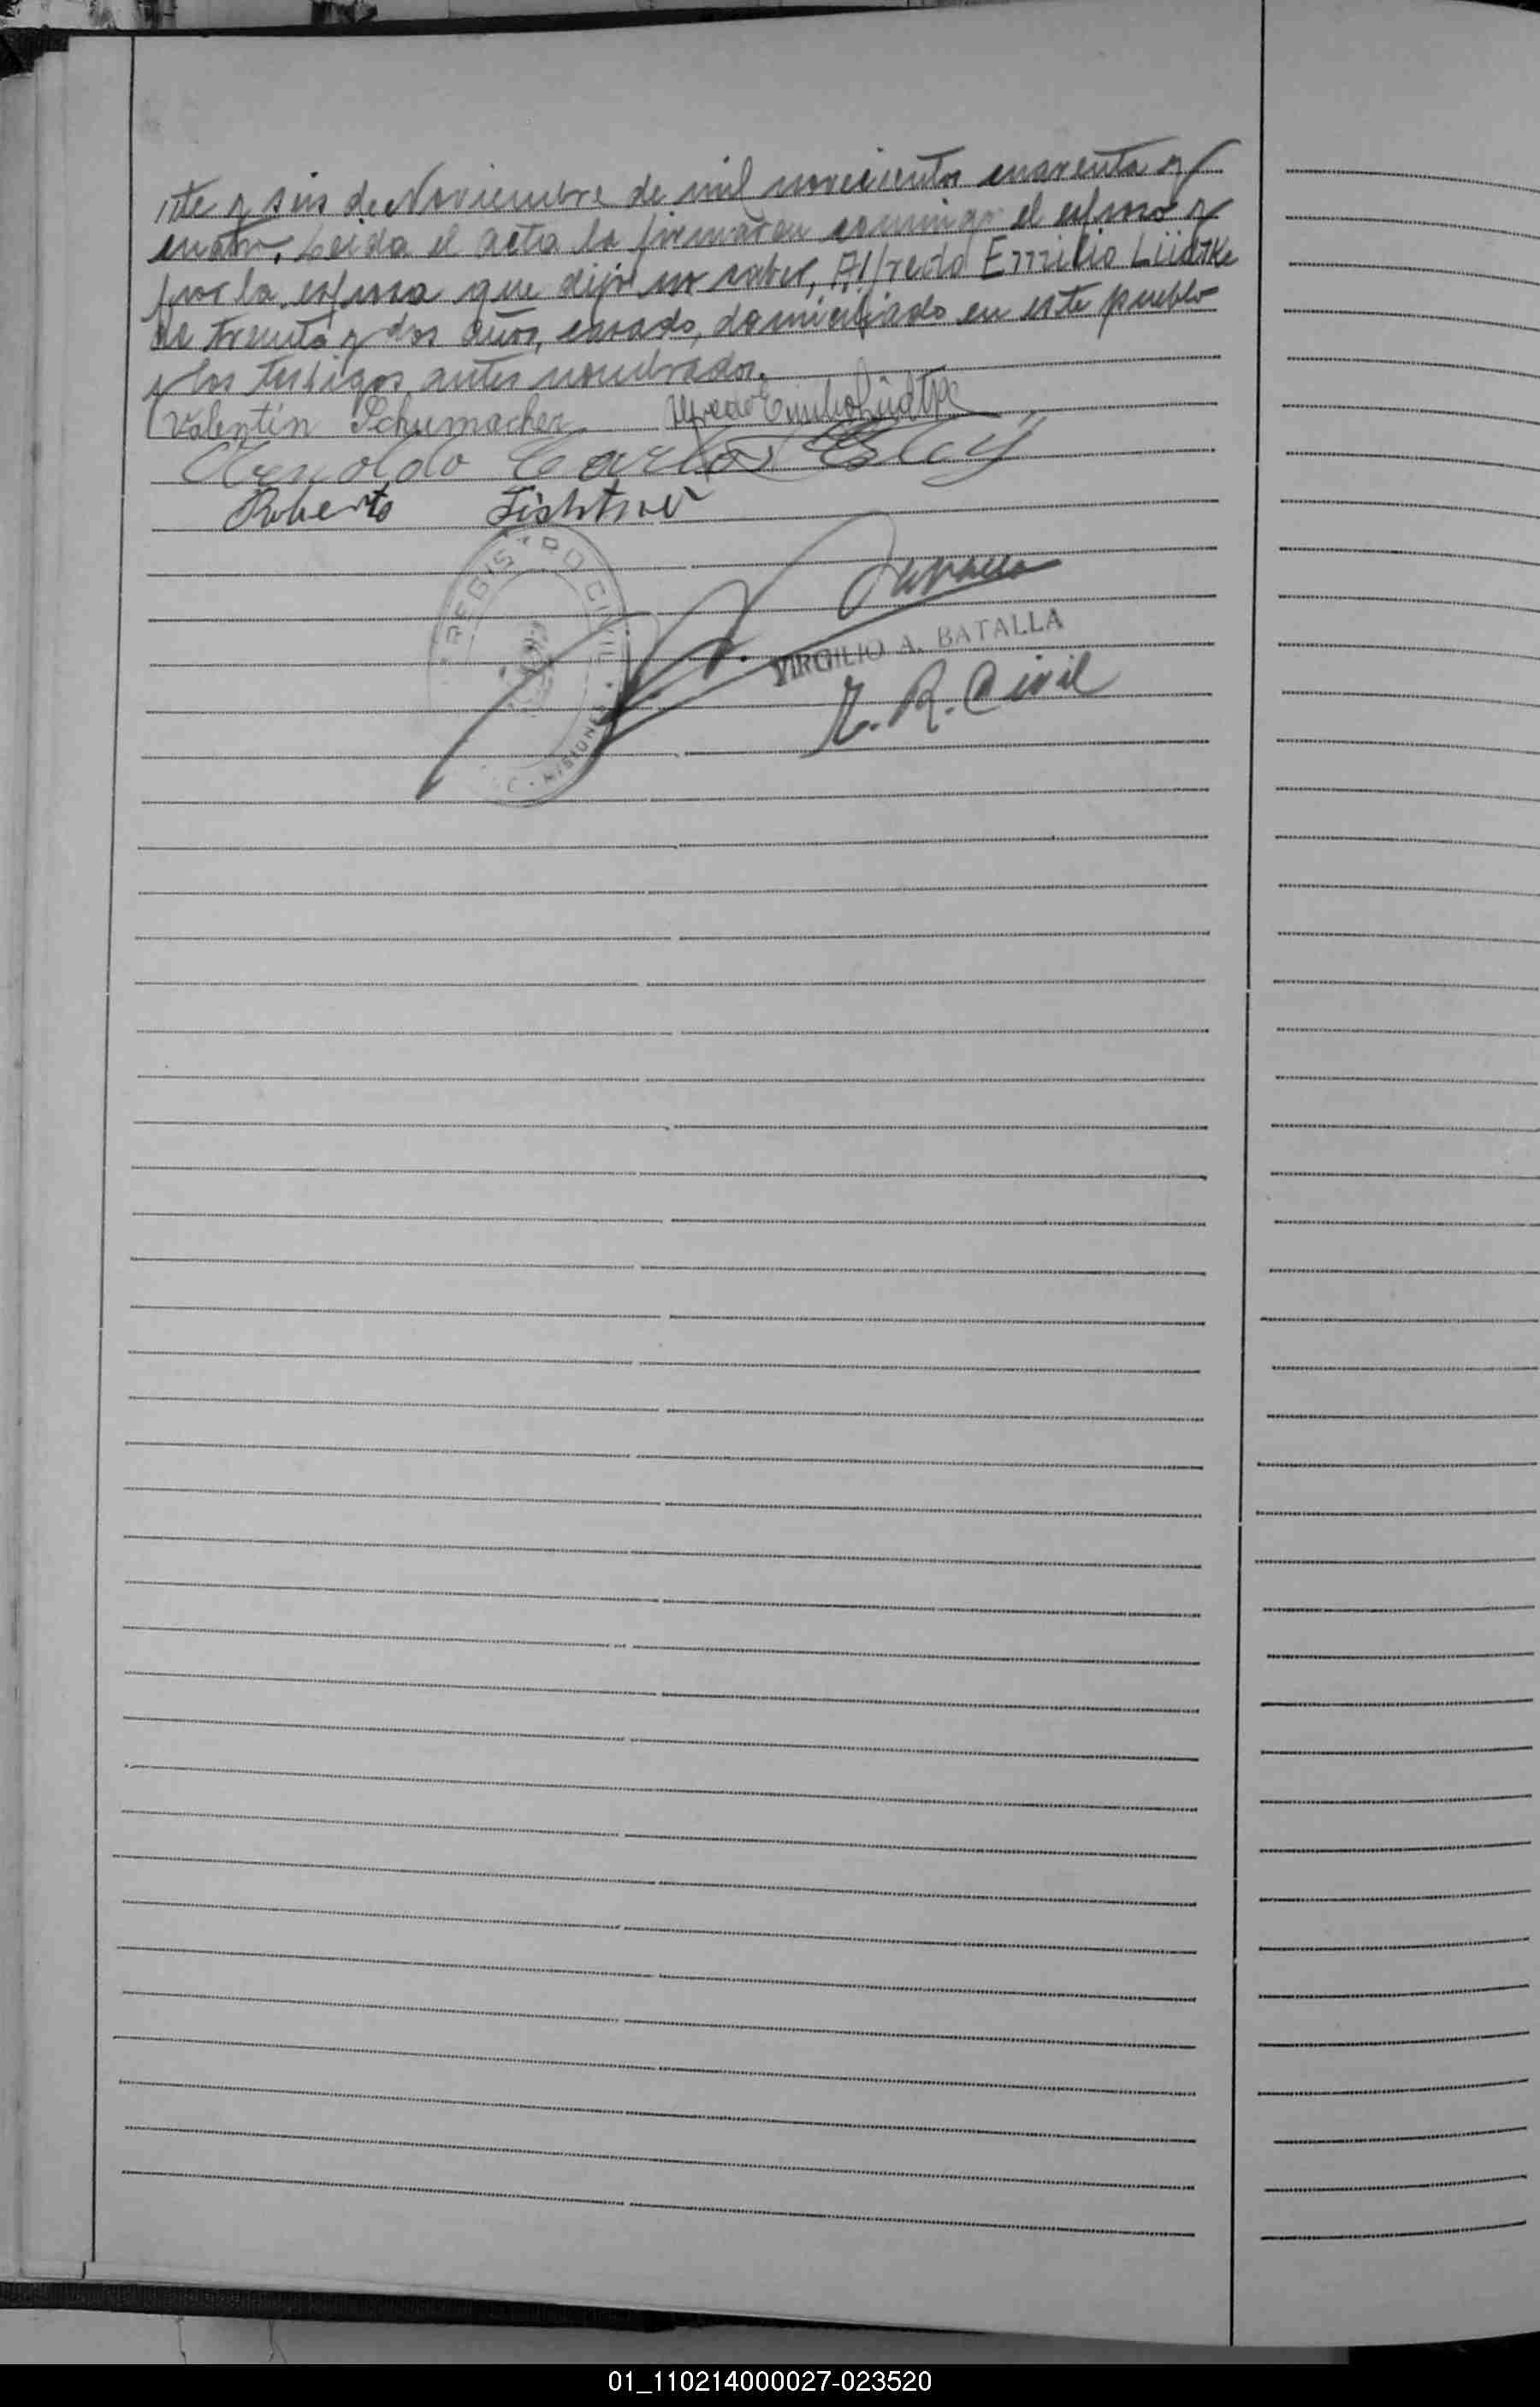 inte y seis de Noviembre de mil novecientos cuarenta y
cuatro. Leida el acta la firmaron conmigo el esposo y
por la esposa que dijo no saber, Alfredo Emilio Lüdtke
de treinta y dos años, casado, domiciliado en este pueblo
y los testigos antes nombrados.
Valentín Schumacher Alfredo Emilio Lüdtke
Arnoldo Carlos
Roberto
REGISTRO CIVIL
MISIONES
VIRGILIO A. BATALLA
R. Civil
01_110214000027-023520